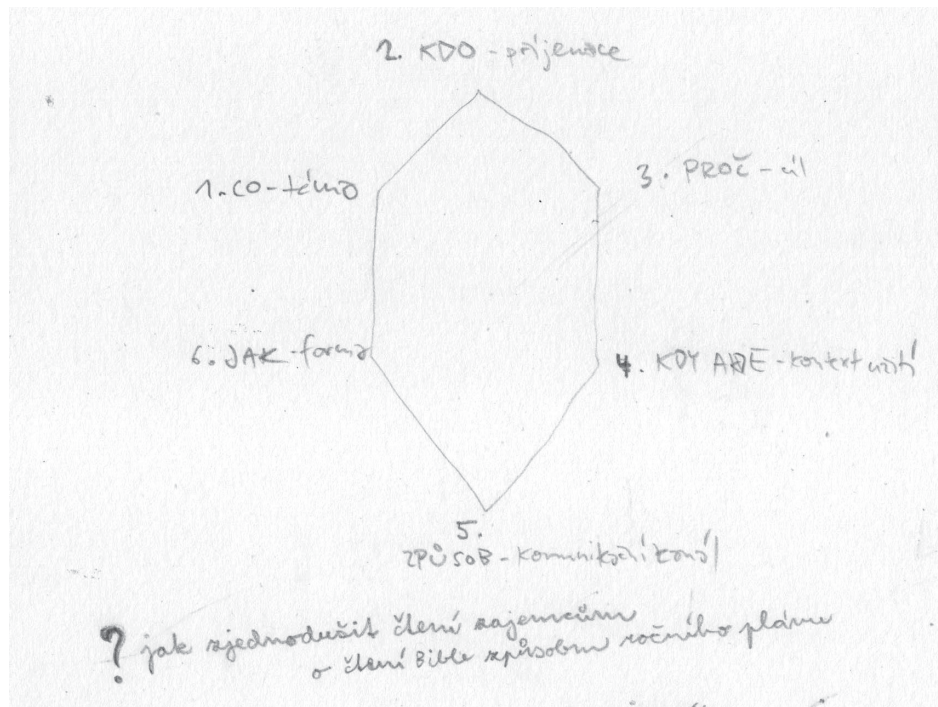 2. KDO - příjemce
1. CO - téma
3. PROČ - cíl
6. JAK - forma
4. KDY A KDE - kontext užití
5.
ZPŮSOB - komunikační kanál
? jak zjednodušit čtení zájemcům
o čtení Bible způsobem ročního plánu